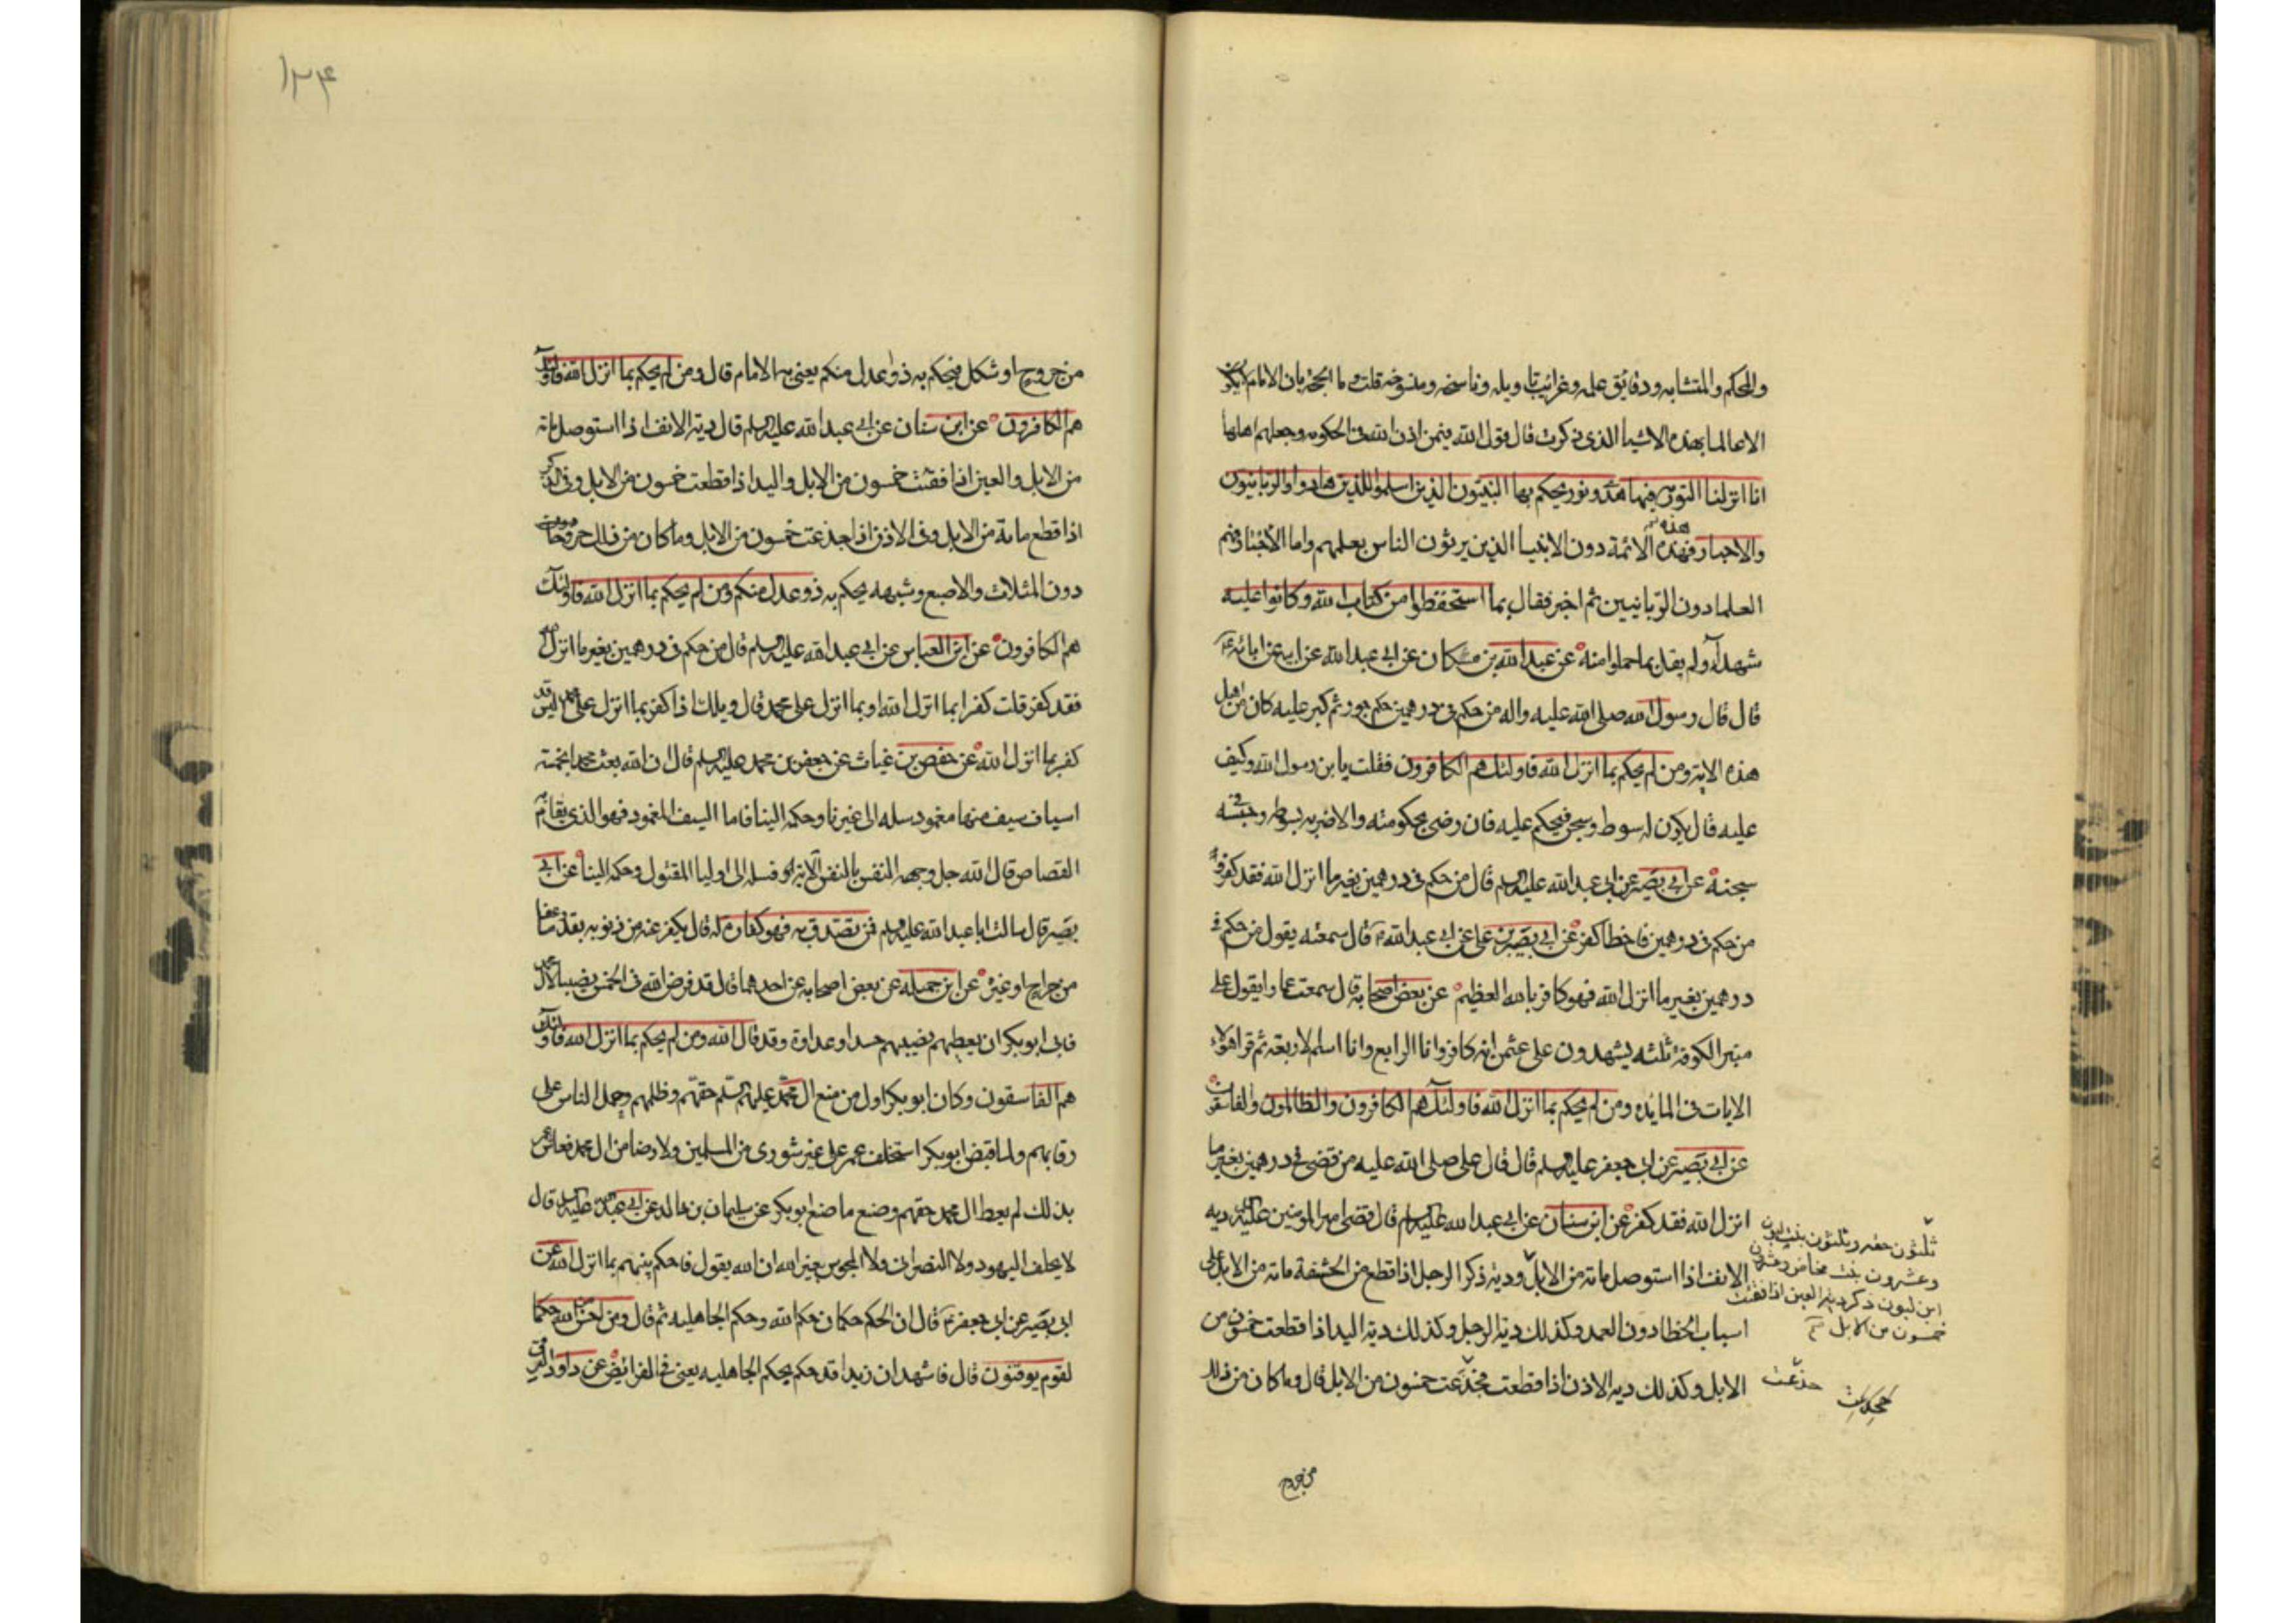 والمحكم والمتشابه ودقائق علمه وغرائب تاويله وناسخه ومنسوخه قلت وما الحجة بان الامام لا يكون
الا عالما بهذه الاشيا الذى ذكرت قال قول الله فيمن اذن الله فى الحكومه وجعلهم اهلها
انا انزلنا التورية فيها هدى ونور يحكم بها النبيون الذين اسلموا للذين هادوا والربانيون
والاحبار فهذه الائمة دون الانبيا الذين يربون الناس بعلمهم واما الاحبار فهم
هذه
العلما دون الربانيين ثم اخبر فقال بما استحفظوا من كتاب الله وكانوا عليه
شهداء ولم يقل بما حملوا منه عن عبد الله بن مسكان عن ابى عبد الله عن ابيه عن ابائه ع
قال قال رسول الله صلى الله عليه واله من حكم فى درهمين حكم جور ثم كبر عليه كان من اهل
هذه الاية ومن لم يحكم بما انزل الله فاولئك هم الكافرون فقلت يا بن رسول الله وكيف
عليه قال يكون له سوط وسجن فيحكم عليه فان رضى بحكومته والا ضربه بسوطه وحبسه فى
سجنه عن ابى بصير عن ابى عبد الله عليه السلم قال من حكم فى درهمين بغير ما انزل الله فقد كفر و
من حكم فى درهمين فاخطا كفر عن ابى بصير بن على عن ابى عبد الله ع قال سمعته يقول من حكم فى
درهمين بغير ما انزل الله فهو كافر بالله العظيم عن بعض اصحابه قال سمعت عمارا يقول على
منبر الكوفة ثلثه يشهدون على عثمن انه كافر وانا الرابع وانا اسلم الاربعة ثم قرا هؤلاء
الايات فى المايده ومن لم يحكم بما انزل الله فاولئك هم الكافرون والظالمون والفاسقون
عن ابى بصير عن ابى جعفر عليه السلم قال قال على صلى الله عليه من قضى فى درهمين بغير ما
انزل الله فقد كفر عن ابن سنان عن ابى عبد الله عليه السلم قال قضى امير المومنين عليه السلم ديه
الانف اذا استوصل مائة من الابل ودية ذكر الرجل اذا قطع من الحشفة مائة من الابل على
اسباب الخطا دون العمد وكذلك دية الرجل وكذلك دية اليد اذا قطعت خمسون من
الابل وكذلك ديه الاذن اذا قطعت فجذعت خمسون من الابل قال وما كان من ذلك
ثلثون حقه وثلثون بنت لبون
وعشرون بنت مخاض وعشرون
ابن لبون ذكر دية العين اذا فقئت
خمسون من الابل
جذعت
من جروح
١٣۴
من جروح او شكل فيحكم به ذوا عدل منكم يعنى به الامام قال ومن لم يحكم بما انزل الله فاولئك
هم الكافرون عن ابن سنان عن ابى عبد الله عليه السلم قال دية الانف اذا استوصل مائة
من الابل والعين اذا فقئت خمسون من الابل واليد اذا قطعت خمسون من الابل وفى الذكر
اذا قطع مائة من الابل وفى الاذن اذا جدعت خمسون من الابل وما كان من ذلك جروحا
دون المثلات والاصبع وشبهه يحكم به ذو عدل منكم ومن لم يحكم بما انزل الله فاولئك
هم الكافرون عن ابن العباس عن ابى عبد الله عليه السلم قال من حكم فى درهمين بغير ما انزل الله
فقد كفر قلت كفر ا بما انزل الله او بما انزل على محمد قال ويلك اذا كفر بما انزل على محمد اليس قد
كفر بما انزل الله عن حفص بن غياث عن جعفر بن محمد عليه السلم قال ان الله بعث محمدا بخمسه
اسياف سيف منها مغمود سله الى غيرنا وحكمه الينا فاما السيف المغمود فهو الذى يقام به
القصاص قال الله جل وجهه النفس بالنفس الاية فسله الى اوليا المقتول وحكمه الينا عن ابى
بصير قال سالت ابا عبد الله عليه السلم فمن تصدق به فهو كفارة له قال يكفر عنه من ذنوبه بقدر ما عفا
من جراح او غيره عن ابن جميله عن بعض اصحابه عن احدهما قال قد فرض الله فى الخمس نصيبا لآل محمد
فابى ابو بكر ان يعطيهم نصيبهم حسدا وعداوة وقد قال الله ومن لم يحكم بما انزل الله فاولئك
هم الفاسقون وكان ابو بكر اول من منع ال محمد عليهم السلم حقهم وظلمهم وحمل الناس على
رقابهم ولما قبض ابو بكر استخلف عمر على غير شورى من المسلمين ولا رضا من ال محمد فعاش عمر
بذلك لم يعط ال محمد حقهم وصنع ما صنع ابو بكر عن سليمان بن خالد عن ابى عبد الله عليه السلم قال
لا يحلف اليهود ولا النصرانى ولا المجوس بغير الله ان الله يقول فاحكم بينهم بما انزل الله عن
ابى بصير عن ابى جعفر ع قال ان الحكم حكمان حكم الله وحكم الجاهليه ثم قال ومن احسن من الله حكما
لقوم يوقنون قال فاشهد ان زيدا قد حكم بحكم الجاهليه يعنى فى الفرائض عن داود الرقى